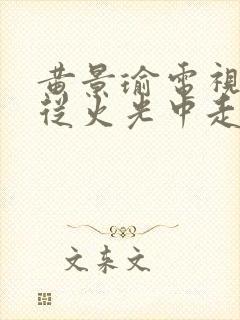 黃景瑜電視
從火光中走
文東文